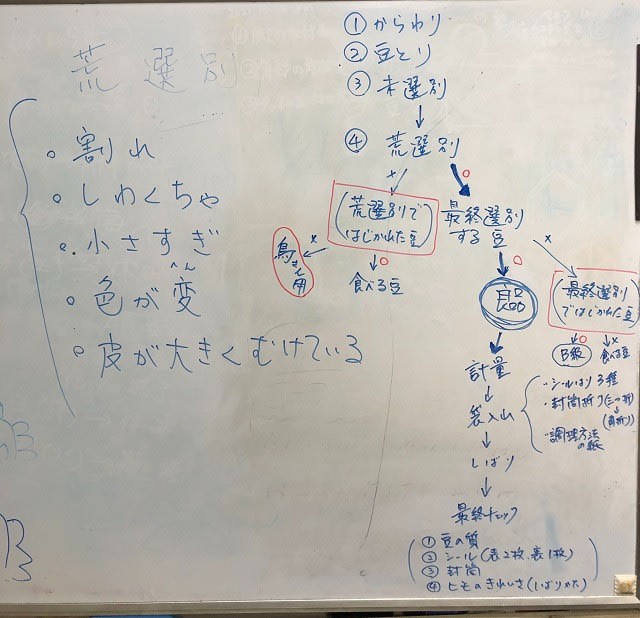 荒選別
。割れ
。しわくちゃ
。小さすぎ
。色が変
へん
。皮が大きくむけている
① からわり
② 豆とり
③ 未選別
↓
④ 荒選別
× ○
(荒選別で
はじかれた豆)
× ○
鳥さん用
食べる豆
最終選別
する豆
○ ×
良品
(最終選別
ではじかれた豆)
○ ×
B級 食べる豆
↓
計量
↓
袋入れ
↓
しばり
↓
最終チェック
・シールはり 3種
・封筒折り(三つ折
↓
(角折り)
・調理方法
の紙
① 豆の質
② シール(表2枚、裏1枚)
③ 封筒
④ ヒモのきれいさ(しばりかた)